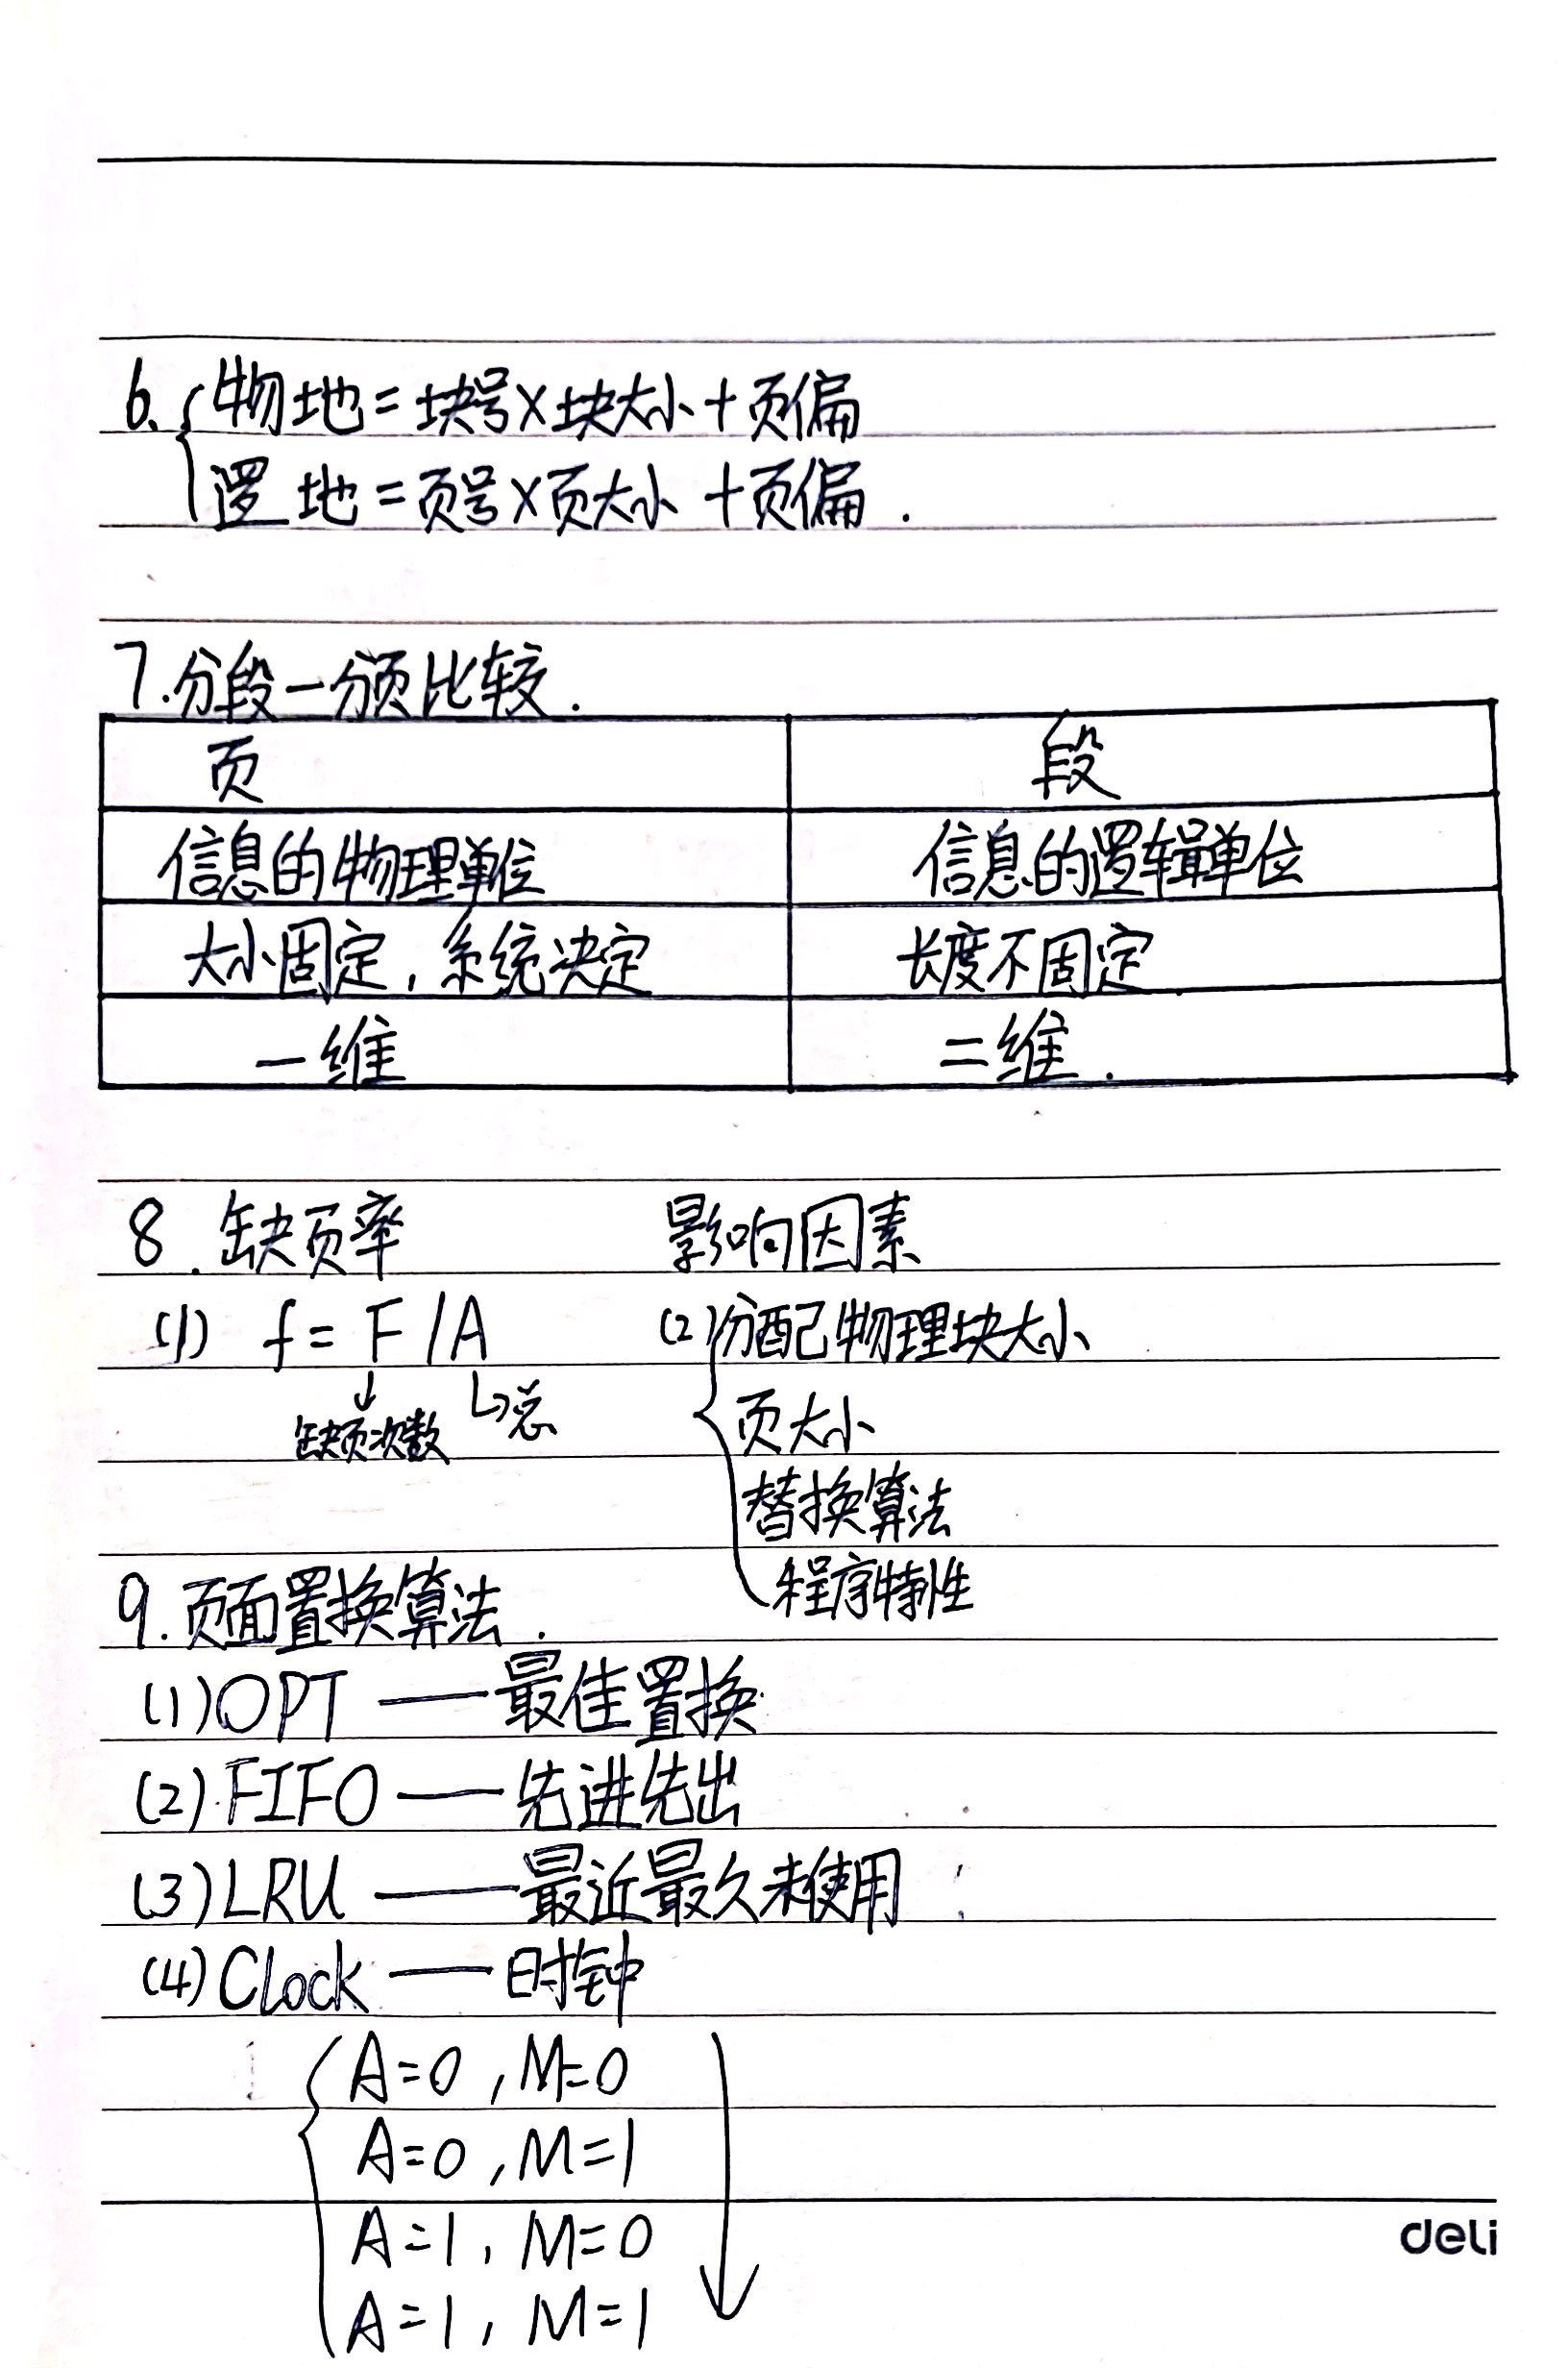 6. 物地=块号×块大小+页偏
逻 地=页号×页大小+页偏.
7.分段—分页比较.
页 段
信息的物理单位 信息的逻辑单位
大小固定,系统决定 长度不固定.
一维 二维.
8.缺页率 影响因素
(1) f=F/A (2)分配物理块大小
↓ ↳总 页大小
缺页次数
替换算法
程序特性
9.页面置换算法.
(1)OPT——最佳置换
(2)FIFO——先进先出
(3)LRU——最近最久未使用
(4)Clock——时钟
A=0,M=0
A=0,M=1
A=1,M=0
A=1,M=1
deli